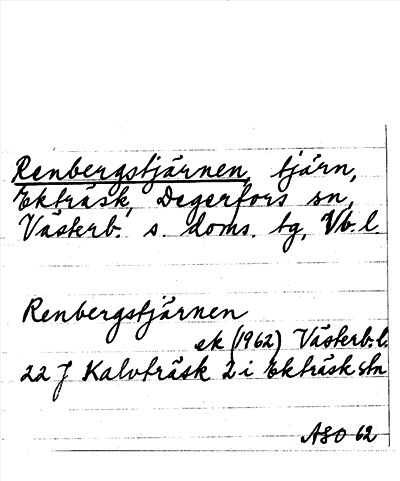 Renbergstjärnen, tjärn,
Ekträsk, Degerfors sn,
Västerb. s. doms. tg, Vb. l.
Renbergstjärnen
ek (1962) Västerb. l.
22 J Kalvträsk 2 i Ekträsk stn
ASO 62